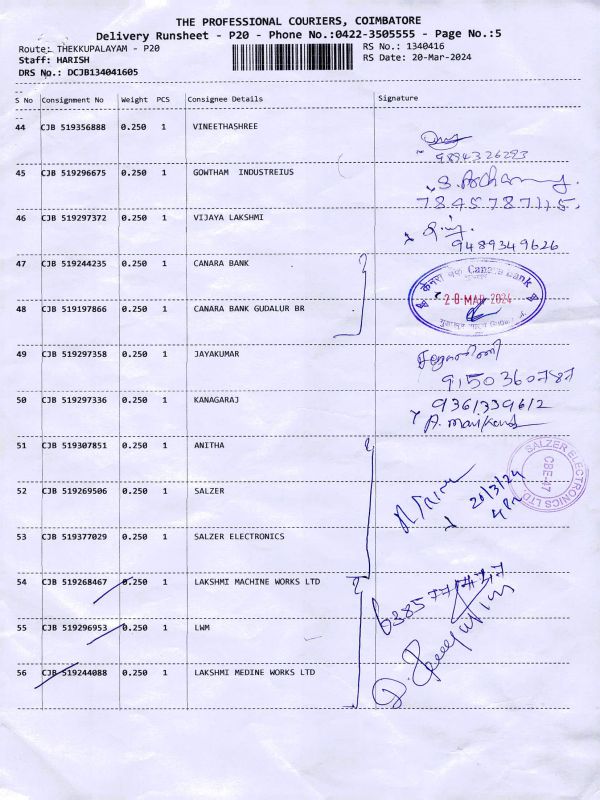 THE PROFESSIONAL COURIERS, COIMBATORE
Delivery Runsheet - P20 - Phone No.:0422-3505555 - Page No.:5
Route: THEKKUPALAYAM - P20
RS No.: 1340416
Staff: HARISH
RS Date: 20-Mar-2024
DRS No.: DCJB134041605
S No Consignment No Weight PCS Consignee Details Signature
44 CJB 519356888 0.250 1 VINEETHASHREE
9894326293
45 CJB 519296675 0.250 1 GOWTHAM INDUSTREIUS
7845787115
46 CJB 519297372 0.250 1 VIJAYA LAKSHMI
9489349626
47 CJB 519244235 0.250 1 CANARA BANK
केनरा बैंक Canara Bank
20 MAR 2024
48 CJB 519197866 0.250 1 CANARA BANK GUDALUR BR
49 CJB 519297358 0.250 1 JAYAKUMAR
9150360787
50 CJB 519297336 0.250 1 KANAGARAJ
9361339612
51 CJB 519307851 0.250 1 ANITHA
SALZER ELECTRONICS LTD
CBE-47
52 CJB 519269506 0.250 1 SALZER
20/3/24
53 CJB 519377029 0.250 1 SALZER ELECTRONICS
54 CJB 519268467 0.250 1 LAKSHMI MACHINE WORKS LTD
55 CJB 519296953 0.250 1 LWM
56 CJB 519244088 0.250 1 LAKSHMI MEDINE WORKS LTD